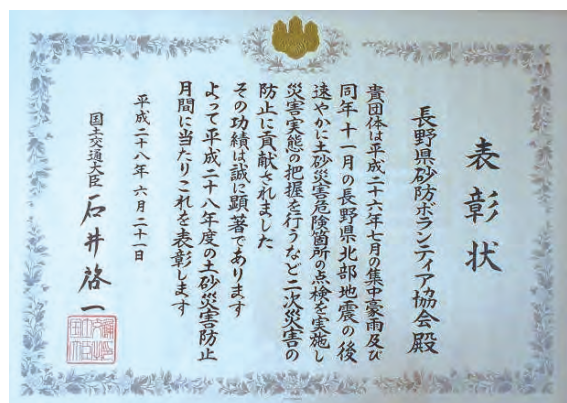 表彰状
長野県砂防ボランティア協会殿
貴団体は平成二十六年七月の集中豪雨及び
同年十一月の長野県北部地震の後
速やかに土砂災害危険箇所の点検を実施し
災害実態の把握を行うなど二次災害の
防止に貢献されました
その功績は誠に顕著であります
よって平成二十八年度の土砂災害防止
月間に当たりこれを表彰します
平成二十八年六月二十一日
国土交通大臣 石井啓一